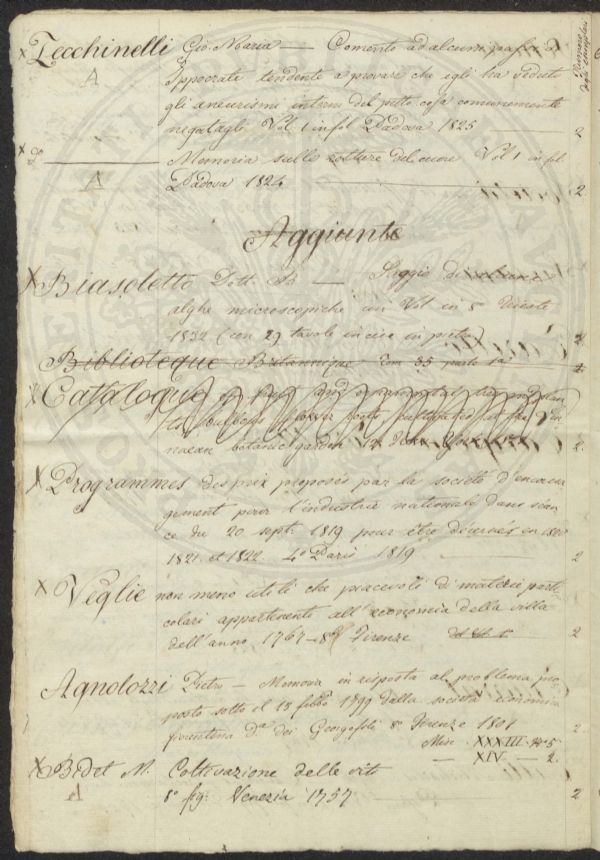 Numero
degli esemplari
x Zecchinelli Gio. Maria — Comento ad alcuni passi d'
A Ippocrate tendente a provare che egli ha veduto
gli aneurismi interni del petto cosa comunemente
negatagli Vol. 1 in fol Padova 1825 2
x d.° Memoria sulle rotture del cuore Vol 1 in fol
A Padova 1824 2
Aggiunte
x Biasoletto Dott. B — Saggio di
alghe microscopiche un Vol in 8 Trieste
1832 (con 29 tavole incise in pietra) 2
Biblioteque Britannique Tom 35 parte 1a
x Catalogue
botanic garden 2
x Programmes des prix proposés par la société d'encoura
gement pour l'industrie nationale dans sean
ce du 20 sept. 1819 pour être décernés en 1820
1821 et 1822 4° Paris 1819 2
x Veglie non meno utili che piacevoli di materie parti
colari appartenente all'economia della villa
dell'anno 1767 — 8° Firenze 2
Agnolozzi Pietro — Memoria in risposta al problema pro
posto sotto il 18 febb° 1799 della società economica
fiorentina d.a dei Georgofili 8° Firenze 1801
Misc. XXXIII N° 5
— XIV — 2.
x Bidet M. Coltivazione delle viti
A 8° fig: Venezia 1757 2